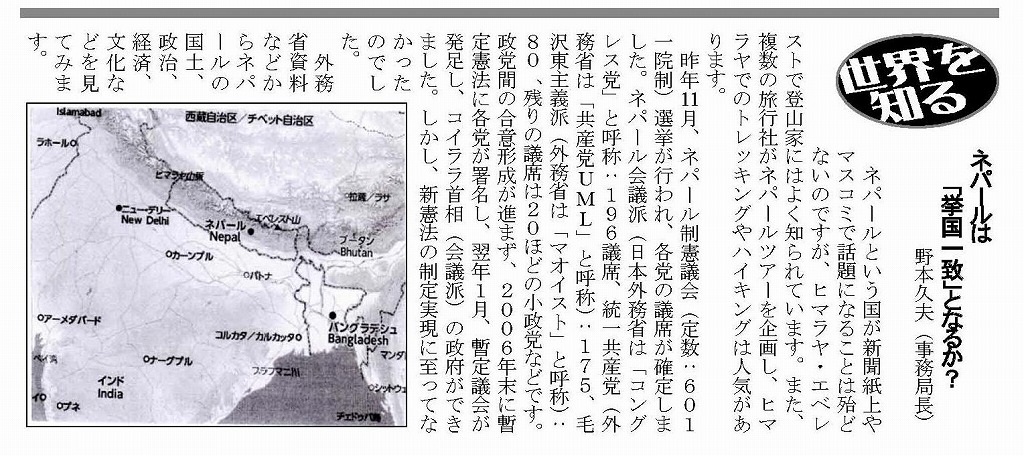 世界を
知る
ネパールは
「挙国一致」となるか？
野本久夫（事務局長）
ネパールという国が新聞紙上や
マスコミで話題になることは殆ど
ないのですが、ヒマラヤ・エベレ
ストで登山家にはよく知られています。また、
複数の旅行社がネパールツアーを企画し、ヒマ
ラヤでのトレッキングやハイキングは人気があ
ります。
昨年11月、ネパール制憲議会（定数：６０１
一院制）選挙が行われ、各党の議席が確定しま
した。ネパール会議派（日本外務省は「コング
レス党」と呼称：１９６議席、統一共産党（外
務省は「共産党ＵＭＬ」と呼称）：１７５、毛
沢東主義派（外務省は「マオイスト」と呼称）：
８０、残りの議席は２０ほどの小政党などです。
政党間の合意形成が進まず、２００６年末に暫
定憲法に各党が署名し、翌年１月、暫定議会が
発足し、コイララ首相（会議派）の政府ができ
ました。しかし、新憲法の制定実現に至ってな
かった
のでし
た。
外務
省資料
などか
らネパ
ールの
国土、
政治、
経済、
文化な
どを見
てみま
す。
Islamabad
西蔵自治区／チベット自治区
ラホール
ヒマラヤ山脈
拉薩／ラサ
ニュー・デリー
New Delhi
ネパール
Nepal
エベレスト山
ブータン
Bhutan
カーンプル
パトナ
アーメダバード
コルカタ／カルカッタ
バングラデシュ
Bangladesh
マンダ
ナーグプル
ブラフマニ川
インド
India
シットウェ
プネ
チェドゥバ島